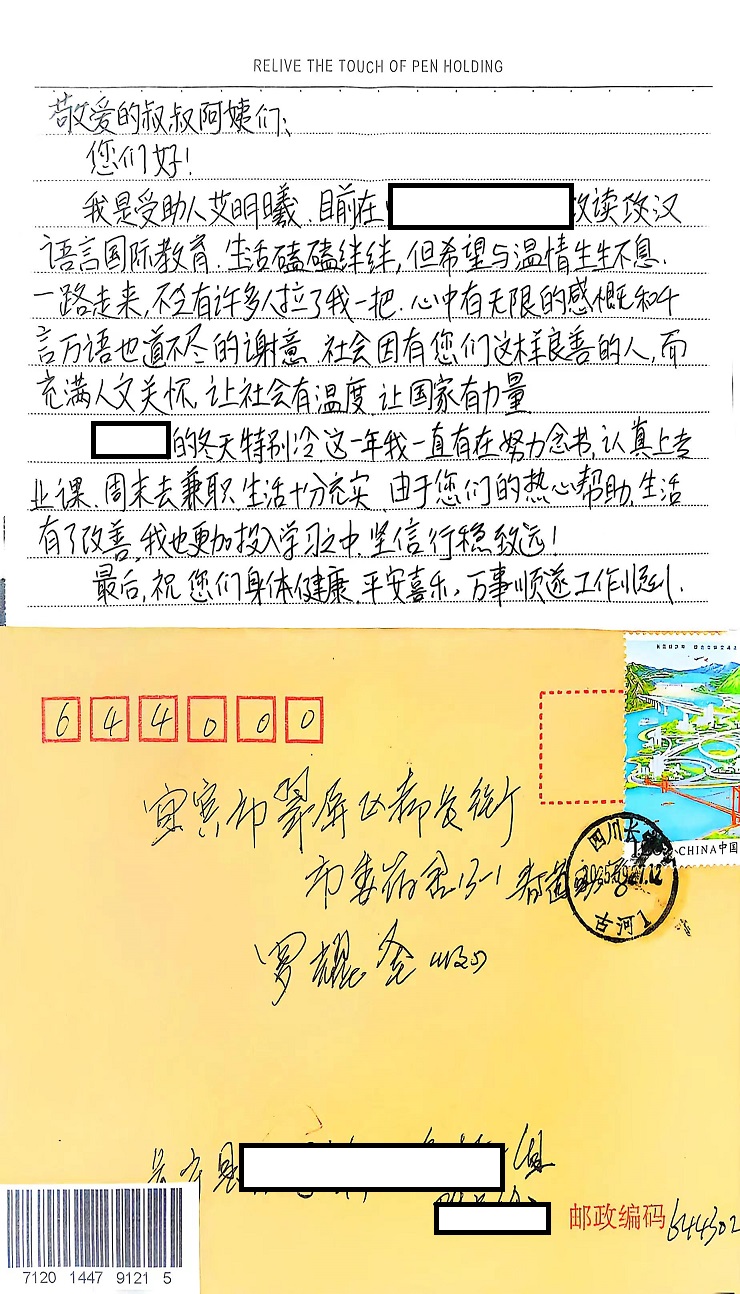 RELIVE THE TOUCH OF PEN HOLDING
敬爱的叔叔阿姨们:
您们好!
我是受助人艾明曦.目前在 攻读汉
语言国际教育.生活磕磕绊绊,但希望与温情生生不息.
一路走来,有许多人拉了我一把.心中有无限的感概和千
言万语也道不尽的谢意.社会因有您们这样良善的人,而
充满人文关怀,让社会有温度.让国家有力量
的冬天特别冷.这一年我一直有在努力念书,认真上专
业课.周末去兼职.生活十分充实.由于您们的热心帮助,生活
有了改善,我也更加投入学习之中.坚信行稳致远!
最后,祝您们身体健康.平安喜乐,万事顺遂工作顺利.
644000
宜宾市翠屏区都长街
市委宿舍13-1
罗耀
四川长
CHINA 中国
古河1
长宁县
邮政编码 644302
7120 1447 9121 5